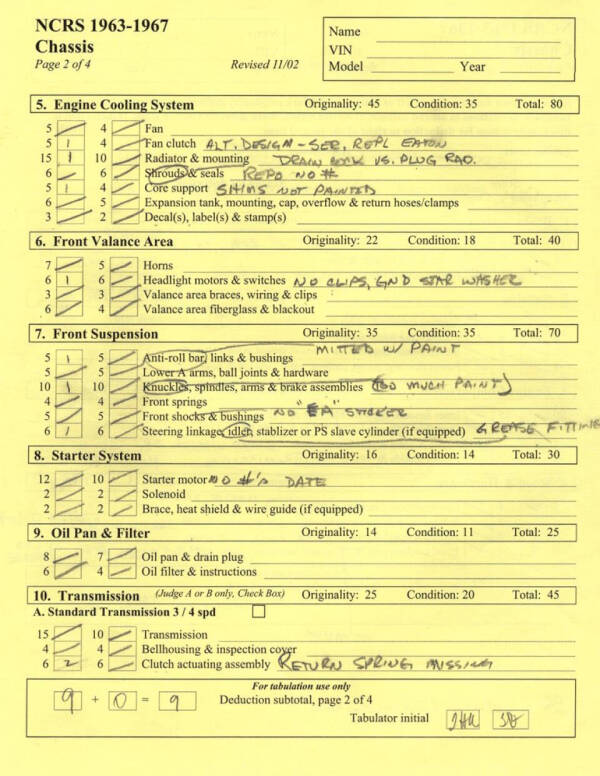 NCRS 1963-1967
Chassis
Page 2 of 4 Revised 11/02
Name
VIN
Model Year
5. Engine Cooling System Originality: 45 Condition: 35 Total: 80
5 4 Fan
5 1 4 Fan clutch ALT. DESIGN - SER. REPL EATON
15 1 10 Radiator & mounting DRAIN COCK VS. PLUG RAD.
6 6 Shrouds & seals REPO NO #
5 1 4 Core support SHIMS NOT PAINTED
6 5 Expansion tank, mounting, cap, overflow & return hoses/clamps
3 2 Decal(s), label(s) & stamp(s)
6. Front Valance Area Originality: 22 Condition: 18 Total: 40
7 5 Horns
6 1 6 Headlight motors & switches NO CLIPS, GND STAR WASHER
3 3 Valance area braces, wiring & clips
6 4 Valance area fiberglass & blackout
7. Front Suspension Originality: 35 Condition: 35 Total: 70
5 1 5 Anti-roll bar, links & bushings W/ PAINT
5 5 Lower A arms, ball joints & hardware
10 1 10 Knuckles, spindles, arms & brake assemblies (SO MUCH PAINT)
4 4 Front springs
5 5 Front shocks & bushings NO "EA" STICKER
6 1 6 Steering linkage, idler, stablizer or PS slave cylinder (if equipped) GREASE FITTING
8. Starter System Originality: 16 Condition: 14 Total: 30
12 10 Starter motor NO #'s DATE
2 2 Solenoid
2 2 Brace, heat shield & wire guide (if equipped)
9. Oil Pan & Filter Originality: 14 Condition: 11 Total: 25
8 7 Oil pan & drain plug
6 4 Oil filter & instructions
10. Transmission (Judge A or B only, Check Box) Originality: 25 Condition: 20 Total: 45
A. Standard Transmission 3 / 4 spd
15 10 Transmission
4 4 Bellhousing & inspection cover
6 2 6 Clutch actuating assembly RETURN SPRING MISSING
For tabulation use only
9 + 0 = 9 Deduction subtotal, page 2 of 4
Tabulator initial